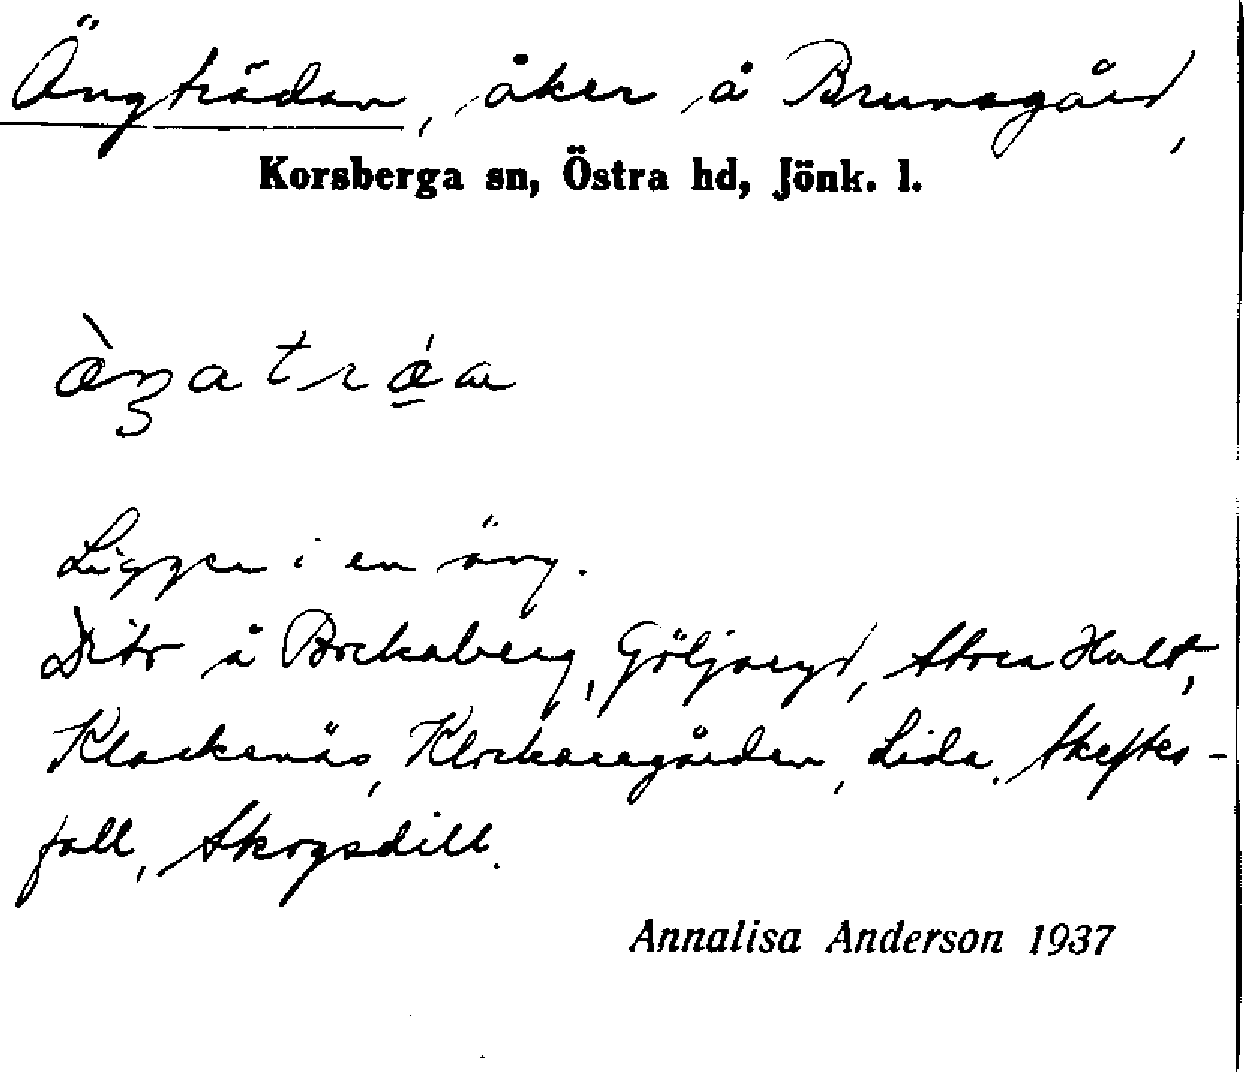 Ängträdan, åker å Brunsgård,
Korsberga sn, Östra hd, Jönk. l.
Ligger i en äng.
Dito å Bockaberg, Göljaryd, Stora Hult,
Klockenäs, Klockaregården, Lida, Skefte-
fall, Skogsdill.
Annalisa Anderson 1937